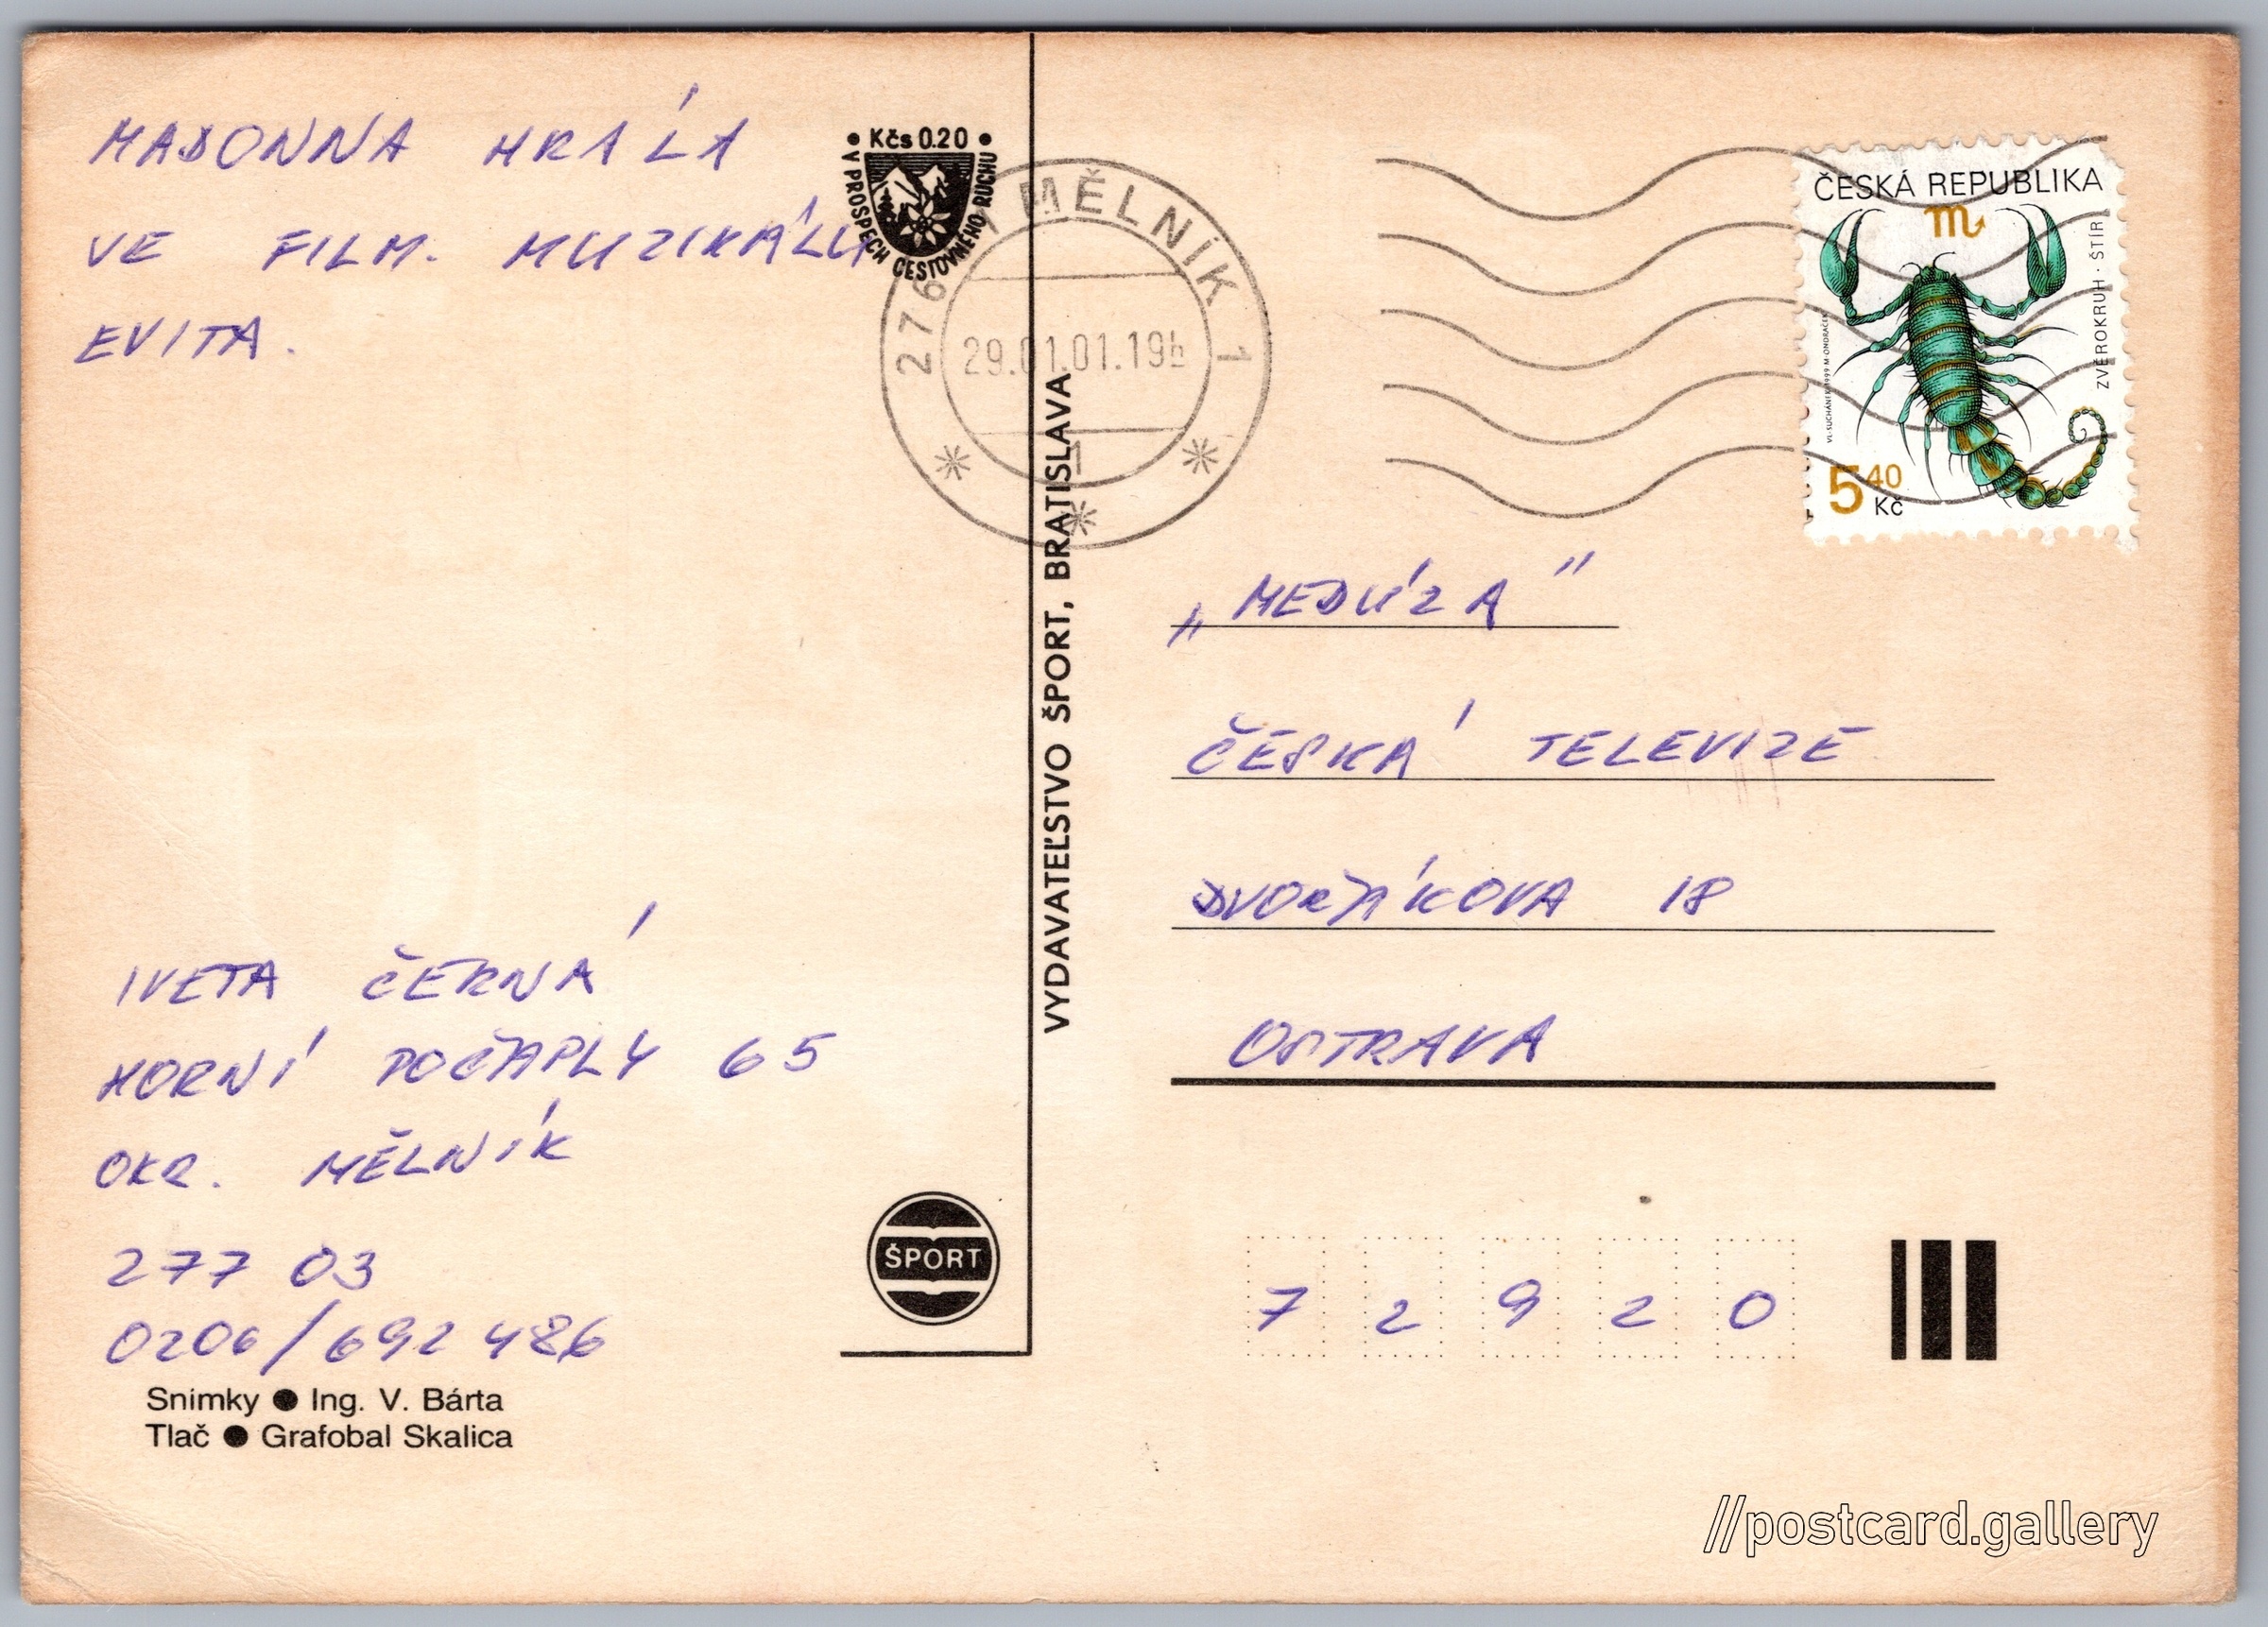 MADONNA HRÁLA
VE FILM. MUZIKÁLU
EVITA.
• Kčs 0.20 •
V PROSPECH CESTOVNÉHO RUCHU
276 01 MĚLNÍK 1
29.01.01.19h
1
ČESKÁ REPUBLIKA
ZVĚROKRUH · ŠTÍR
VL.SUCHÁNEK 1999 M.ONDRÁČEK
5 40
Kč
VYDAVATEĽSTVO ŠPORT, BRATISLAVA
„MEDÚZA"
ČESKÁ TELEVIZE
DVOŘÁKOVA 18
OSTRAVA
72920
IVETA ČERNÁ
HORNÍ POČAPLY 65
OKR. MĚLNÍK
277 03
0206/692 486
ŠPORT
Snímky ● Ing. V. Bárta
Tlač ● Grafobal Skalica
//postcard.gallery